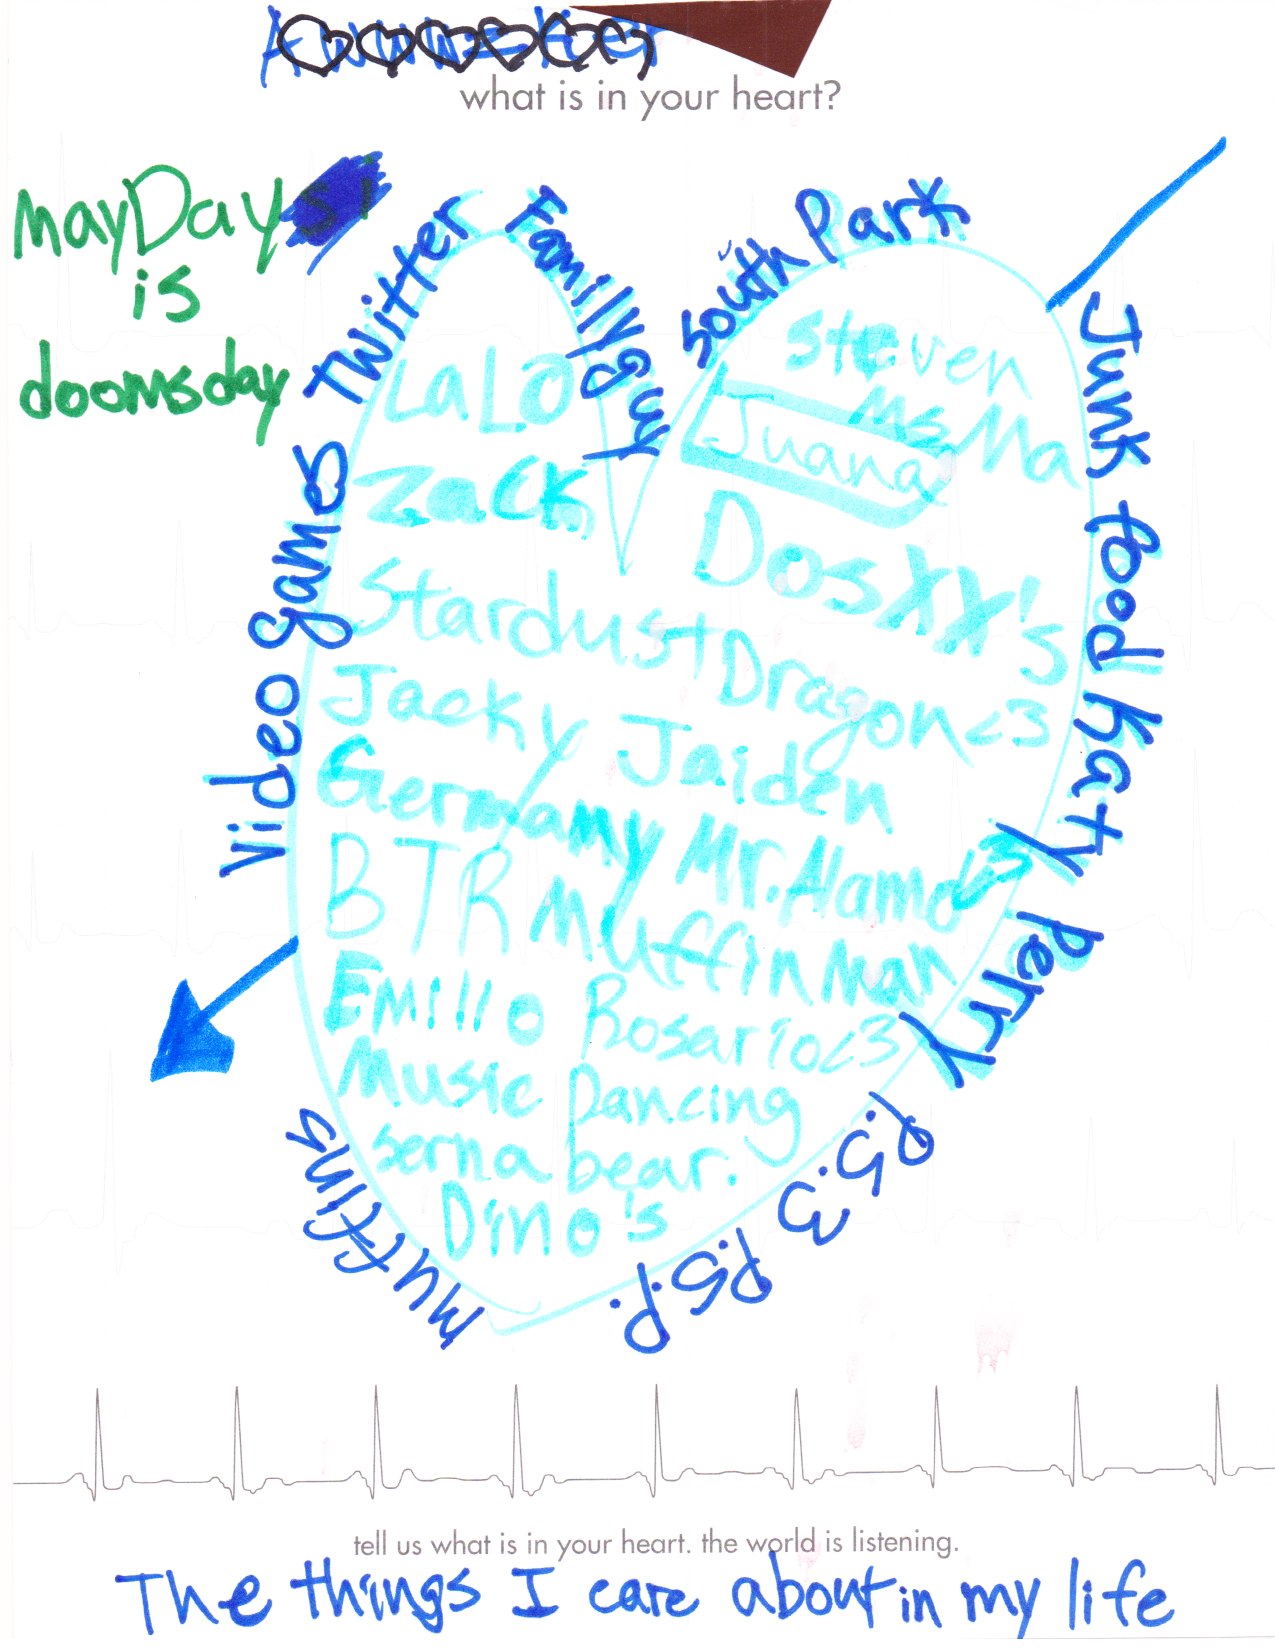 what is in your heart?
mayDay
is
doomsday
Twitter
Family guy
South Park
Junk food
Katy Perry
P.S. 3
P.S.P.
Muffins
Video games
LaLo
Zack
Steven
Ms. Ma
Juana
Dos XX's
Stardust Dragon <3
Jacky Jaiden
Germamy Mr. Alamo <3
BTR Muffin Man
Emilio Rosario <3
Music Dancing
serna bear.
Dino's
tell us what is in your heart. the world is listening.
The things I care about in my life